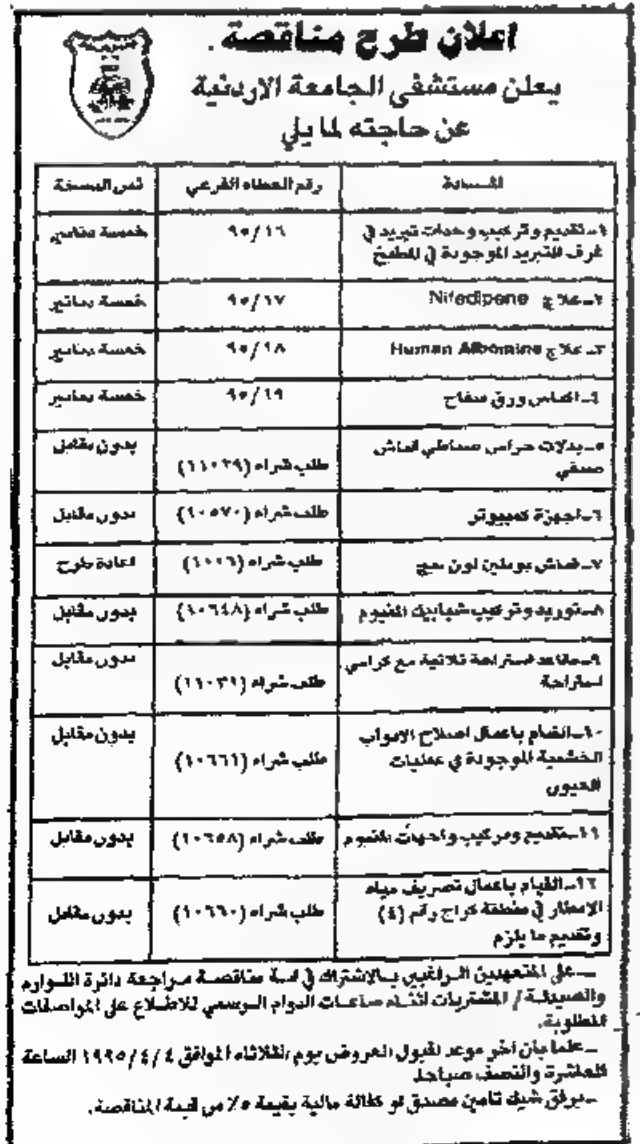 اعلان طرح مناقصة .
يعلن مستشفى الجامعة الاردنية
عن حاجته لما يلي
المــادة رقم العطاء الفرعي ثمن النسخة
١-تقديم وتركيب وحدات تبريد في ٩٥/١٦ خمسة دنانير
غرف التبريد الموجودة في المطبخ
٢-علاج Nifedipene ٩٥/١٧ خمسة دنانير
٣-علاج Human Albomine ٩٥/١٨ خمسة دنانير
٤-اكياس ورق سفاح ٩٥/١٩ خمسة دنانير
٥-بدلات حراس ضباطي قماش طلب شراء (١١٠٢٩) بدون مقابل
صيفي
٦-اجهزة كمبيوتر طلب شراء (١٠٥٧٠) بدون مقابل
٧-قماش بوبلين لون بيج طلب شراء اعادة طرح
٨-توريد وتركيب شبابيك المنيوم طلب شراء (١٠٦٤٨) بدون مقابل
٩-مقاعد استراحة ثلاثية مع كراسي طلب شراء (١١٠٣١) بدون مقابل
استراحة
١٠-القيام باعمال اصلاح الابواب طلب شراء (١٠٦٦١) بدون مقابل
الخشبية الموجودة في عمليات
العيون
١١-تقديم وتركيب واجهات المنيوم طلب شراء (١٠٦٥٨) بدون مقابل
١٢-القيام باعمال تصريف مياه طلب شراء (١٠٦٦٠) بدون مقابل
الامطار في منطقة كراج رقم (٤)
وتقديم ما يلزم
-على المتعهدين الراغبين بالاشتراك في اية مناقصة مراجعة دائرة اللوازم
والصيدلة/ المشتريات اثناء ساعات الدوام الرسمي للاطلاع على المواصفات
المطلوبة.
-علما بان اخر موعد لقبول العروض يوم الثلاثاء الموافق ١٩٩٥/٤/٤ الساعة
العاشرة والنصف صباحا.
-يرفق شيك تامين مصدق او كفالة مالية بقيمة ٥٪ من قيمة المناقصة.